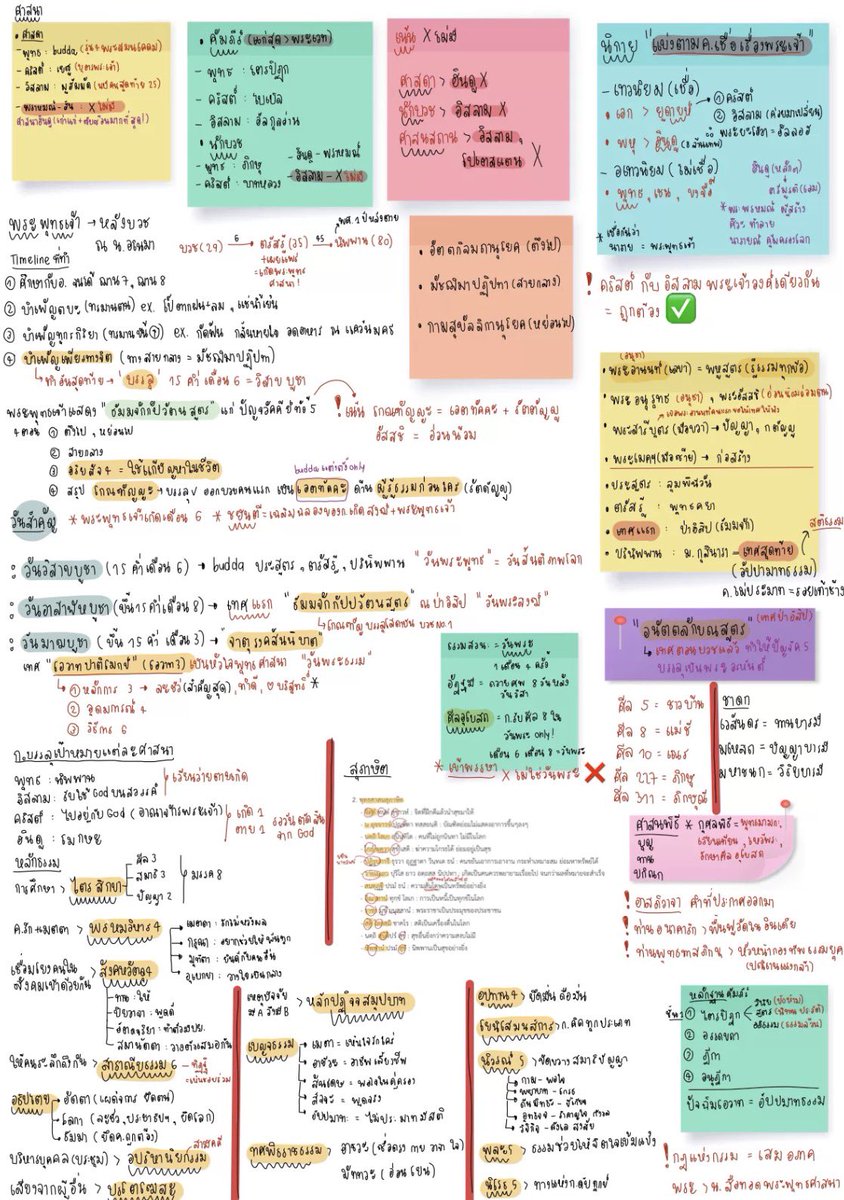 ศาสนา
• ศาสดา
- พุทธ : budda
- คริสต์ : เยซู (บุตรพระเจ้า)
- อิสลาม : มูฮัมมัด
- พราหมณ์-ฮินดู : X ไม่มี
• คัมภีร์ (เก่าสุด > พระเวท)
- พุทธ : ไตรปิฎก
- คริสต์ : ไบเบิล
- อิสลาม : อัลกุรอ่าน
• นักบวช
- พุทธ : ภิกษุ
- คริสต์ : บาทหลวง
- ฮินดู - พราหมณ์
- อิสลาม - X ไม่มี
เน้น X ไม่มี
ศาสดา > ฮินดู X
นักบวช > อิสลาม X
ศาสนสถาน > อิสลาม,
โปเตสแตน X
นิกาย "แบ่งตามค.เชื่อเรื่องพระเจ้า"
- เทวนิยม (เชื่อ)
① คริสต์
② อิสลาม
• เอก > ยูดาย
• พหุ > ฮินดู
- อเทวนิยม (ไม่เชื่อ)
• พุทธ, เชน, ขงจื๊อ
ฮินดู (หลักๆ)
ตรีมูรติ (รวม)
พระพรหมณ์ ผู้สร้าง
ศิวะ ทำลาย
นารายณ์ คุ้มครองโลก
* เชื่อกันว่า
นารายณ์ = พระพุทธเจ้า
พระพุทธเจ้า → หลังบวช
ณ น.อโนมา
บวช (29) 6 → ตรัสรู้ (35) 45 → นิพพาน (80)
พศ. 1 ปีหลังตาย
+เผยแพร่
=เกิดพระพุทธ
ศาสนา!
Timeline ที่ทำ
① ศึกษากับอ. จนได้ ฌาน 7, ฌาน 8
② บำเพ็ญตบะ (ทรมานตน) ex. โป๊ตากฝน+ลม, แช่น้ำเย็น
③ บำเพ็ญทุกรกิริยา ex. กัดฟัน กลั้นหายใจ อดอาหาร ณ แคว้นมคธ
④ บำเพ็ญเพียรทางจิต (ทางสายกลาง = มัชฌิมาปฏิปทา)
↳ ทำอันสุดท้าย → "บรรลุ" 15 ค่ำเดือน 6 = วิสาขบูชา
• อัตตกิลมถานุโยค (ตึงไป)
• มัชฌิมาปฏิปทา (สายกลาง)
• กามสุขัลลิกานุโยค (หย่อนไป)
! คริสต์ กับ อิสลาม พระเจ้าองค์เดียวกัน
= ถูกต้อง ✅
พระพุทธเจ้าแสดง "ธัมมจักกัปวัตนสูตร" แก่ ปัญจวัคคีย์ทั้ง 5
4 ตอน ① ตึงไป, หย่อนไป
② สายกลาง
③ อริยสัจ 4 = ใช้แก้ปัญหาในชีวิต
④ สรุป โกณฑัญญะ → บรรลุ ออกบวชคนแรก เป็น เอตทัคคะ ด้าน ผู้รู้ธรรมก่อนใคร (รัตตัญญู)
budda แต่งตั้ง only
! เน้น โกณฑัญญะ = เอตทัคคะ + รัตตัญญู
อัสสชิ = อ่อนน้อม
• พระอานนท์ = พหูสูตร
• พระอนุรุทธ, พระอัสสชิ
• พระสารีบุตร (มือขวา) → ปัญญา, กตัญญู
• พระโมคฯ (มือซ้าย) → ก่อสร้าง
• ประสูตร : ลุมพินีวัน
• ตรัสรู้ : พุทธคยา
• เทศแรก : ป่าอิสิป
• ปรินิพพาน : ม.กุสินารา → เทศสุดท้าย
(อัปปามาทธรรม)
ค.ไม่ประมาท = รอยเท้าช้าง
วันสำคัญ * พระพุทธเจ้าเกิดเดือน 6
: วันวิสาขบูชา (15 ค่ำเดือน 6) → budda ประสูตร, ตรัสรู้, ปรินิพพาน "วันพระพุทธ" = วันสันติภาพโลก
: วันอาสาฬหบูชา (ขึ้น 15 ค่ำเดือน 8) → เทศแรก "ธัมมจักกัปปวัตนสูตร" ณ ป่าอิสิป "วันพระสงฆ์"
: วันมาฆบูชา (ขึ้น 15 ค่ำ เดือน 3) → "จาตุรงคสันนิบาต"
เทศ "โอวาทปาติโมกข์" (โอวาท 3) เป็นหัวใจพุทธศาสนา "วันพระธรรม"
↳ ① หลักการ 3 → ละชั่ว (สำคัญสุด), ทำดี, ♡ บริสุทธิ์ *
② อุดมการณ์ 4
③ วิธีการ 6
ธรรมสวนะ = วันพระ
1 เดือน 4 ครั้ง
อัฏฐมี = ถวายพระเพลิง 8 วันหลัง
วันวิสา
ศีลอุโบสถ = ก.รับศีล 8 ใน
วันพระ only!
* เข้าพรรษา X ไม่ใช่วันพระ ❌
"อนัตตลักขณสูตร" (เทศป่าอิสิป)
↳ เทศตอนบวชแล้ว ทำให้ปัญจวัค 5
บรรลุเป็นพระอรหันต์
ศีล 5 = ชาวบ้าน
ศีล 8 = แม่ชี
ศีล 10 = เณร
ศีล 227 = ภิกษุ
ศีล 311 = ภิกษุณี
ชาดก
เวสันดร = ทานบารมี
มโหสถ = ปัญญาบารมี
มหาชนก = วิริยบารมี
ก.บรรลุเป้าหมายแต่ละศาสนา
พุทธ : นิพพาน
อิสลาม : รับใช้ God บนสวรรค์
คริสต์ : ไปอยู่กับ God (อาณาจักรพระเจ้า)
ฮินดู : โมกษะ
เวียนว่ายตายเกิด
เกิด 1
ตาย 1
รอวันตัดสิน
จาก God
หลักธรรม
การศึกษา > ไตรสิกขา
ศีล 3
สมาธิ 3
ปัญญา 2
มรรค 8
ค.รัก+เมตตา > พรหมวิหาร 4
เมตตา : รักไม่หวังผล
กรุณา : อยากช่วยให้พ้นทุกข์
มุทิตา : ยินดีกับคนอื่น
อุเบกขา : วางใจเป็นกลาง
เชื่อมโยงคนใน
สังคมเข้าด้วยกัน > สังคหวัตถุ 4
ทาน : ให้
ปิยวาจา : พูดดี
อัตถจริยา : ทำตัวมีปย.
สมานัตตา : วางตัวเสมอกัน
ให้คนระลึกถึงกัน > สาราณียธรรม 6
อธิปไตย
อัตตา (เผด็จการ ยึดตน)
โลกา
ธัมมา (ยึดค.ถูกต้อง)
บริหารบุคคล (ประชุม) > อปริหานิยธรรม
เสียงจากผู้อื่น > ปรโตโฆสะ
สุภาษิต
2. พุทธศาสนสุภาษิต
: จิตที่ฝึกแล้วนำสุขมาให้
: บัณฑิตย่อมไม่แสดงอาการขึ้นๆลงๆ
: คนที่ไม่ถูกนินทา ไม่มีในโลก
: ฆ่าความโกรธได้ ย่อมอยู่เป็นสุข
: คนขยันเอาการเอางาน กระทำเหมาะสม ย่อมหาทรัพย์ได้
: เกิดเป็นคนควรพยายามเรื่อยไป จนกว่าผลที่หมายจะสำเร็จ
: ความสันโดษเป็นทรัพย์อย่างยิ่ง
: การเป็นหนี้เป็นทุกข์ในโลก
: พระราชาเป็นประมุขของประชาชน
: สติเป็นเครื่องตื่นในโลก
: สุขอื่นยิ่งกว่าความสงบไม่มี
: นิพพานเป็นสุขอย่างยิ่ง
ศาสนพิธี
บุญ
ทาน
ปกิณก
* กุศลพิธี
! ท่านอนาคาริก > ฟื้นฟูวัดในอินเดีย
เหตุปัจจัย
มี A จึงมี B > หลักปฏิจจสมุปบาท
เบญจธรรม
อาชีวะ = อาชีพเลี้ยงชีพ
สัจจะ = พูดจริง
อัปปมาทะ = ไม่ประมาทมีสติ
ทศพิธราชธรรม
มัททวะ (อ่อนโยน)
อุปาทาน 4 > ยึดมั่น ถือมั่น
โยนิโสมนสิการ > ก.คิดทุกประเภท
นิวรณ์ 5 > ขัดขวางสมาธิปัญญา
กาม - พอใจ
พยาบาท - โกรธ
พละ 5 >
หลักฐานคัมภีร์
① ไตรปิฎก
② อรรถกถา
③ ฎีกา
④ อนุฎีกา
ปัจฉิมโอวาท = อัปปมาทธรรม
! กฎแห่งกรรม = เสมอภาค
พระ > น.สืบทอดพระพุทธศาสนา